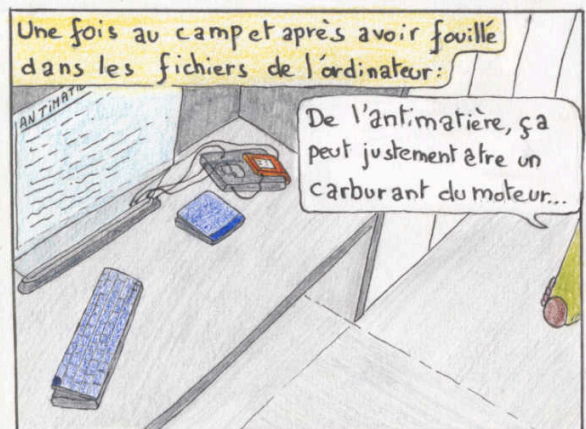 Une fois au camp et après avoir fouillé
dans les fichiers de l'ordinateur:
De l'antimatière, ça
peut justement être un
carburant du moteur...